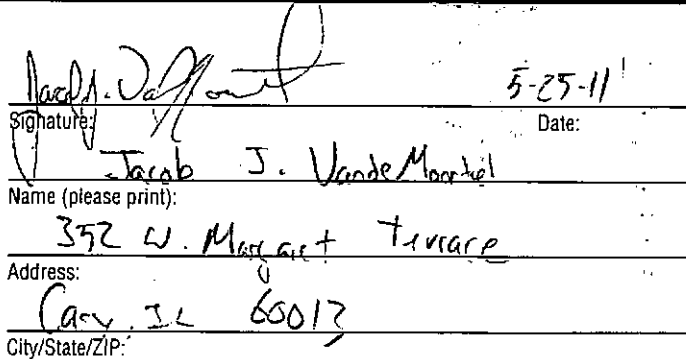 5-25-11
Signature: Date:
Jacob J. VandeMoortel
Name (please print):
352 W. Margaret Terrace
Address:
Cary, IL 60013
City/State/ZIP: